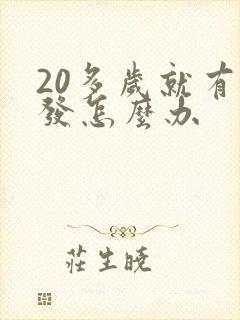 20多歲就有
發怎麼办
莊生曉